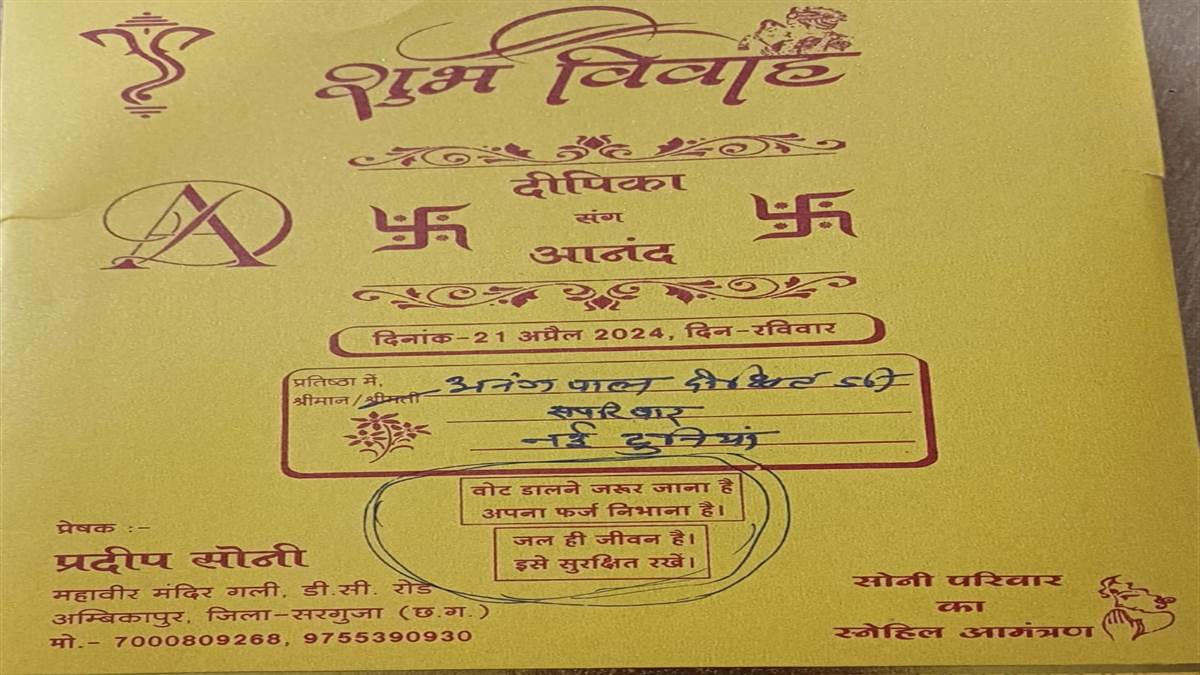 शुभ विवाह
दीपिका
संग
आनंद
दिनांक-21 अप्रैल 2024, दिन-रविवार
प्रतिष्ठा में,
श्रीमान/श्रीमती अनंगपाल दीक्षित जी
सपरिवार
नई दुनियां
वोट डालने जरूर जाना है
अपना फर्ज निभाना है।
जल ही जीवन है।
इसे सुरक्षित रखें।
प्रेषक :-
प्रदीप सोनी
महावीर मंदिर गली, डी.सी. रोड
अम्बिकापुर, जिला-सरगुजा (छ.ग.)
मो.- 7000809268, 9755390930
सोनी परिवार
का
स्नेहिल आमंत्रण